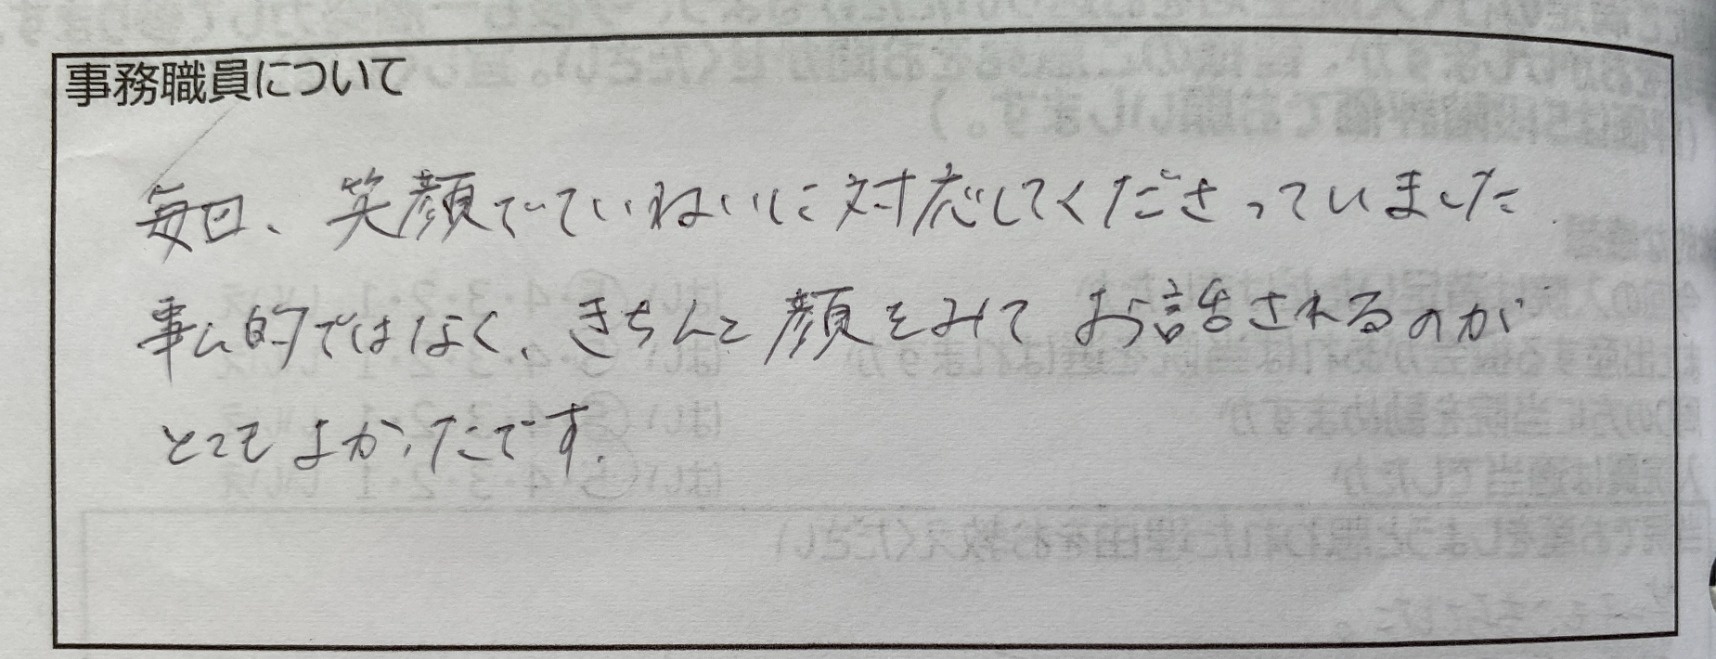 事務職員について
毎回、笑顔でていねいに対応してくださっていました。
事ム的ではなく、きちんと顔をみてお話されるのが
とてもよかったです。